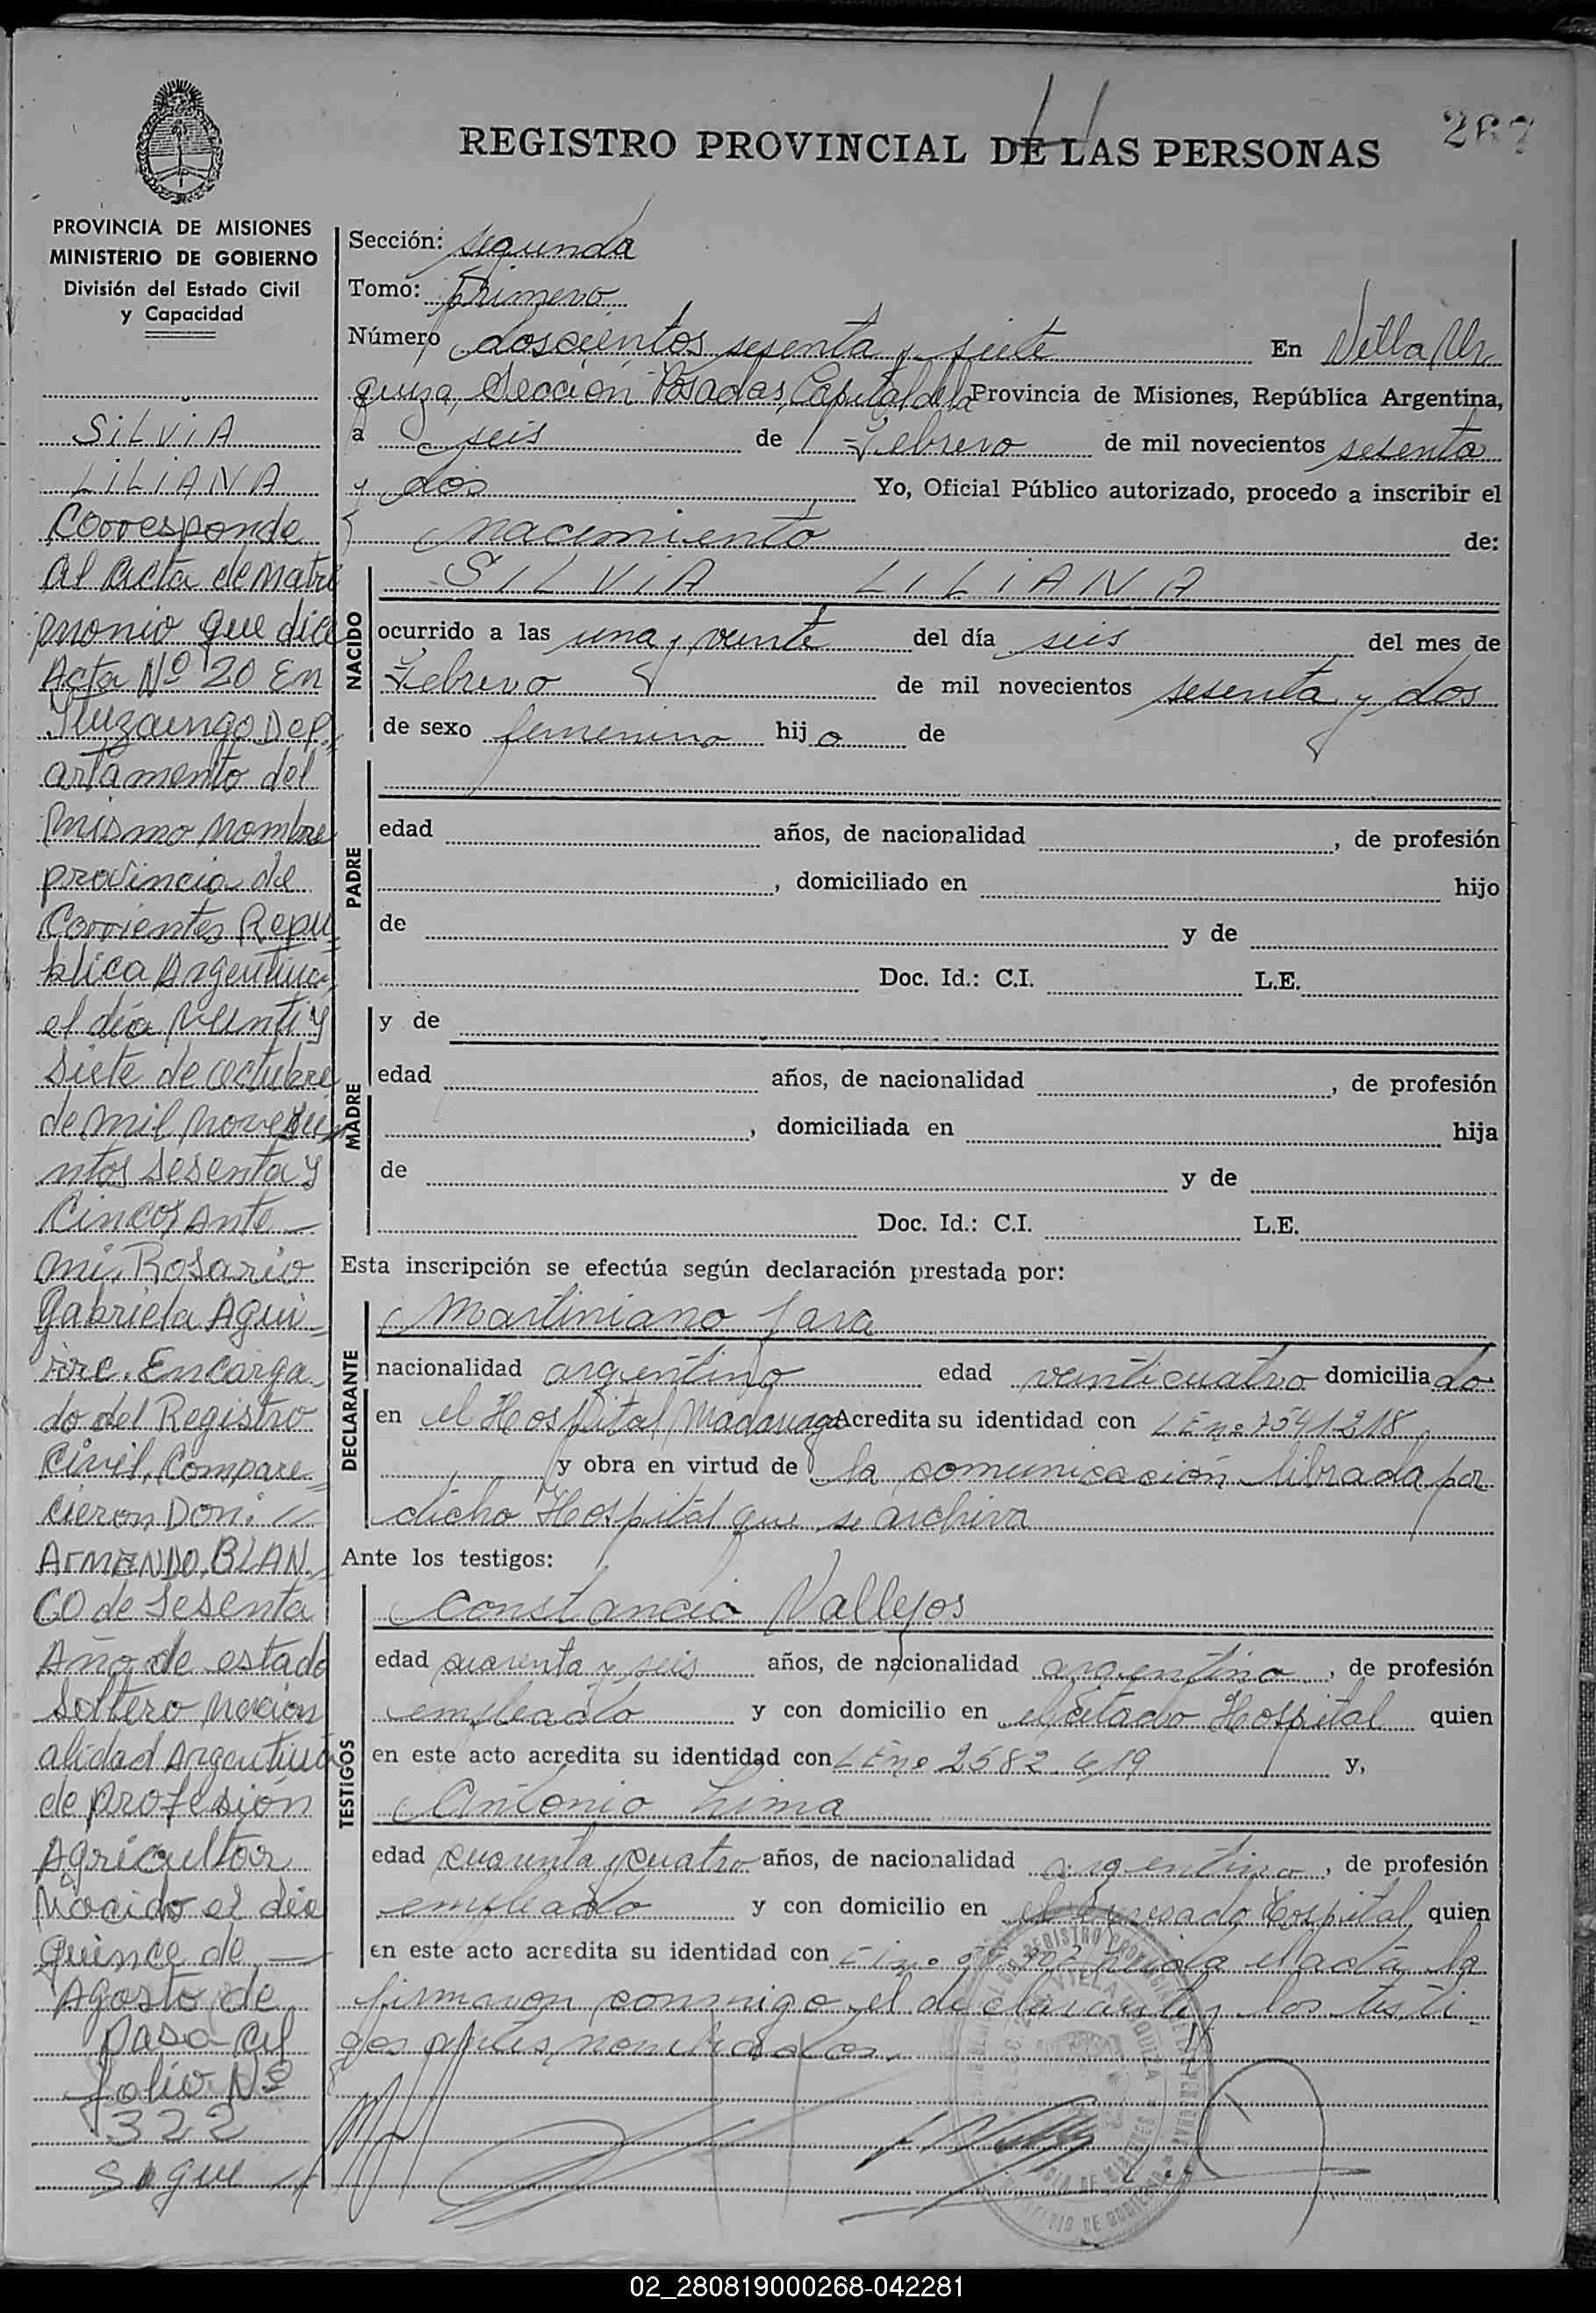 267
REGISTRO PROVINCIAL DE LAS PERSONAS
PROVINCIA DE MISIONES
MINISTERIO DE GOBIERNO
División del Estado Civil
y Capacidad
SILVIA
LILIANA
Corresponde
al acta de matri
monio que dice
Acta Nº 20 En
Ituzaingo Dep.
artamento del
mismo nombre
provincia de
Corrientes Repu
blica Argentina
el día veinti y
siete de octubre
de mil novecie
ntos sesenta y
cinco, Ante
mi, Rosario
Gabriela Agui
rre. Encarga
do del Registro
Civil, Compare
cieron Don:
ArmANDO, BLAN
CO de sesenta
Año de estado
soltero nacion
alidad Argentina
de profesion
Agricultor
Nacido el día
quince de
Agosto de
Pasa al
folio Nº
322
Sigue
Sección: segunda
Tomo: Primero
Número doscientos sesenta y siete En Villa Ur
quiza, Sección Posadas, Capital de la Provincia de Misiones, República Argentina,
a seis de Febrero de mil novecientos sesenta
y dos Yo, Oficial Público autorizado, procedo a inscribir el
nacimiento de:
NACIDO
SILVIA LILIANA
ocurrido a las una y veinte del día seis del mes de
Febrero de mil novecientos sesenta y dos
de sexo femenino hij o de
PADRE
edad años, de nacionalidad , de profesión
, domiciliado en hijo
de y de
Doc. Id.: C.I. L.E.
MADRE
y de
edad años, de nacionalidad , de profesión
, domiciliada en hija
de y de
Doc. Id.: C.I. L.E.
Esta inscripción se efectúa según declaración prestada por:
DECLARANTE
Martiniano Jara
nacionalidad argentino edad veinticuatro domicilia do
en el Hospital Madariaga Acredita su identidad con LE nº 7541218
y obra en virtud de la comunicación librada por
dicho Hospital que se archiva
Ante los testigos:
TESTIGOS
Constancio Vallejos
edad cuarenta y seis años, de nacionalidad argentino, de profesión
empleado y con domicilio en el citado Hospital quien
en este acto acredita su identidad con LE nº 2582.419 y,
Antonio Lima
edad cuarenta y cuatro años, de nacionalidad argentino, de profesión
empleado y con domicilio en el Hospital quien
en este acto acredita su identidad con el acta la
firmaron conmigo el declarante y los testi
gos antes nombrados.
02_280819000268-042281